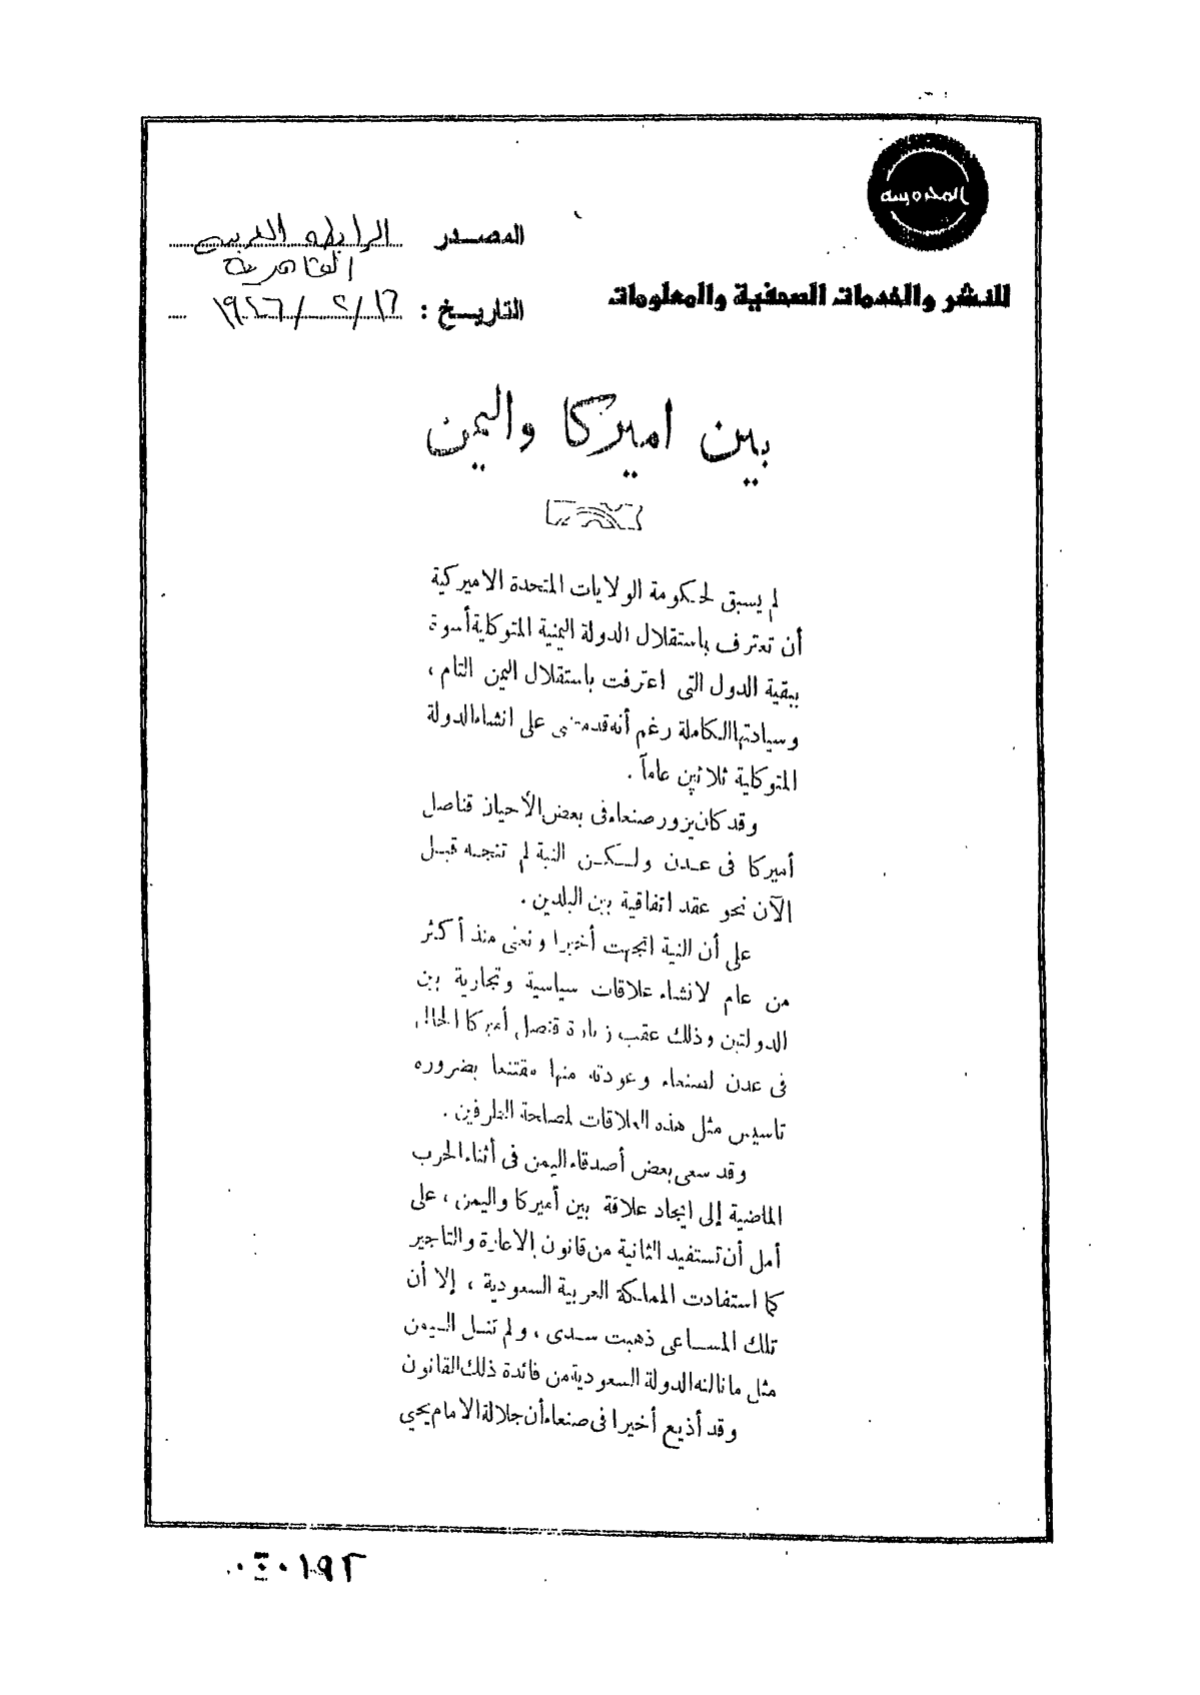 المحروسة
المصدر الرابطه العربيه
القاهرية
للنشر والخدمات الصحفية والمعلومات
التاريخ : ١٦/٢/١٩٤٦
بين اميركا واليمن
لم يسبق لحكومة الولايات المتحدة الاميركية
أن تعترف باستقلال الدولة اليمنية المتوكلية أسوة
ببقية الدول التى اعترفت باستقلال اليمن التام ،
وسيادتها الكاملة رغم أنه قد مضى على انشاء الدولة
المتوكلية ثلاثين عاماً .
وقد كان يزور صنعاء فى بعض الأحيان قناصل
أميركا فى عدن ولكن النية لم تتجه قبل
الآن نحو عقد اتفاقية بين البلدين .
على أن النية اتجهت أخيرا ونعنى منذ أكثر
من عام لانشاء علاقات سياسية وتجارية بين
الدولتين وذلك عقب زيارة قنصل أميركا الحالى
فى عدن لصنعاء وعودته منها مقتنعا بضروره
تاسيس مثل هذه العلاقات لمصلحة الطرفين .
وقد سعى بعض أصدقاء اليمن فى أثناء الحرب
الماضية إلى ايجاد علاقة بين أميركا واليمن ، على
أمل أن تستفيد الثانية من قانون الاعارة والتاجير
كما استفادت المملكة العربية السعودية ، إلا أن
تلك المساعى ذهبت سدى ، ولم تنل اليمن
مثل ما نالته الدولة السعودية من فائدة ذلك القانون
وقد أذيع أخيرا فى صنعاء أن جلالة الامام يحيى